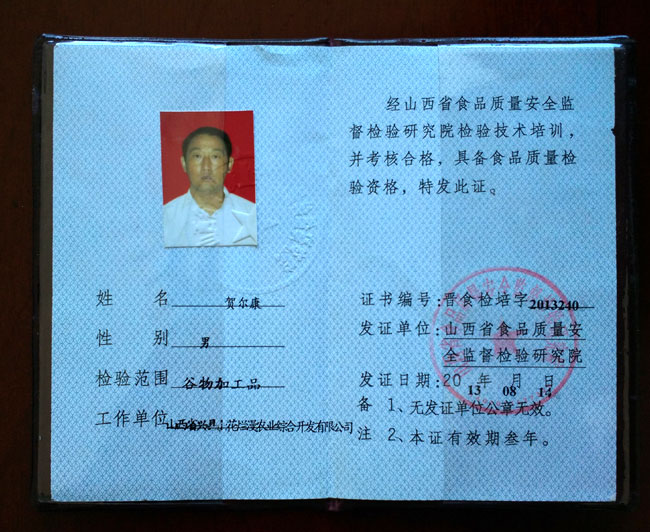 姓名 贺尔康
性别 男
检验范围 谷物加工品
工作单位 山西省 农业综合开发有限公司
经山西省食品质量安全监
督检验研究院检验技术培训，
并考核合格，具备食品质量检
验资格，特发此证。
证书编号:晋食检培字2013240
发证单位:山西省食品质量安
全监督检验研究院
发证日期:2013年08月14日
备 1、无发证单位公章无效。
注 2、本证有效期叁年。